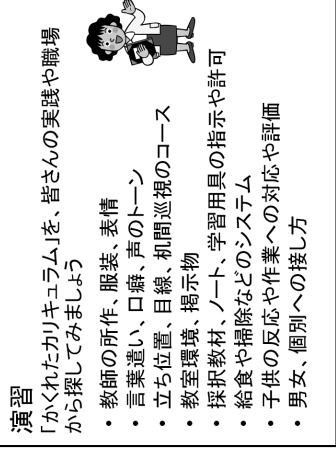 演習
「かくれたカリキュラム」を、皆さんの実践や職場
から探してみましょう
• 教師の所作、服装、表情
• 言葉遣い、口癖、声のトーン
• 立ち位置、目線、机間巡視のコース
• 教室環境、掲示物
• 採択教材、ノート、学習用具の指示や許可
• 給食や掃除などのシステム
• 子供の反応や作業への対応や評価
• 男女、個別への接し方